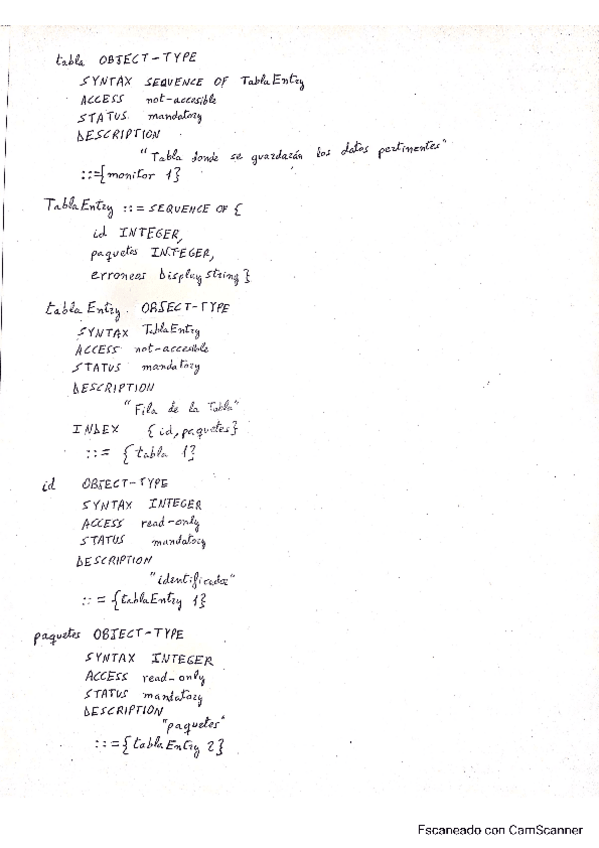 tabla OBJECT-TYPE
SYNTAX SEQUENCE OF TablaEntry
ACCESS not-accesible
STATUS mandatory
DESCRIPTION
"Tabla donde se guardarán los datos pertinentes"
::={monitor 1}
TablaEntry ::= SEQUENCE OF {
id INTEGER,
paquetes INTEGER,
erroneas Displaystring}
tablaEntry OBJECT-TYPE
SYNTAX TablaEntry
ACCESS not-accesible
STATUS mandatory
DESCRIPTION
"Fila de la Tabla"
INDEX {id, paquetes}
::= {tabla 1}
id OBJECT-TYPE
SYNTAX INTEGER
ACCESS read-only
STATUS mandatory
DESCRIPTION
"identificador"
::= {tablaEntry 1}
paquetes OBJECT-TYPE
SYNTAX INTEGER
ACCESS read-only
STATUS mandatory
DESCRIPTION
"paquetes"
::={tablaEntry 2}
Escaneado con CamScanner